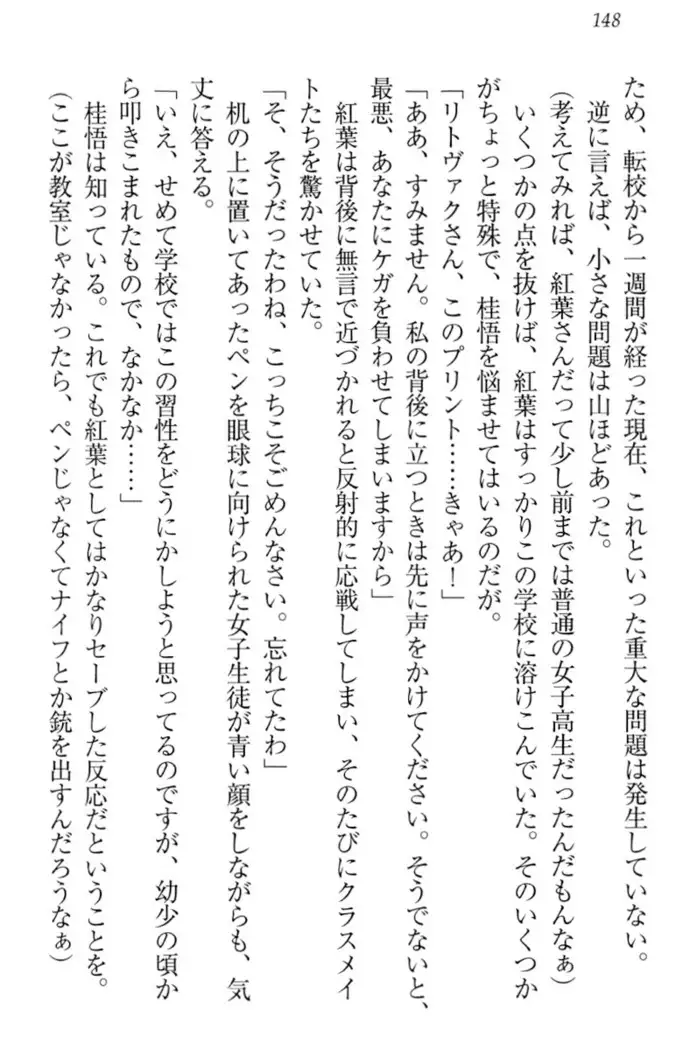 148
ため、転校から一週間が経った現在、これといった重大な問題は発生していない。
逆に言えば、小さな問題は山ほどあった。
(考えてみれば、紅葉さんだって少し前までは普通の女子高生だったんだもんなぁ)
いくつかの点を抜けば、紅葉はすっかりこの学校に溶けこんでいた。そのいくつか
がちょっと特殊で、桂悟を悩ませてはいるのだが。
「リトヴァクさん、このプリント……きゃあ!」
「ああ、すみません。私の背後に立つときは先に声をかけてください。そうでないと、
最悪、あなたにケガを負わせてしまいますから」
紅葉は背後に無言で近づかれると反射的に応戦してしまい、そのたびにクラスメイ
トたちを驚かせていた。
「そ、そうだったわね、こっちこそごめんなさい。忘れてたわ」
机の上に置いてあったペンを眼球に向けられた女子生徒が青い顔をしながらも、気
丈に答える。
「いえ、せめて学校ではこの習性をどうにかしようと思ってるのですが、幼少の頃か
ら叩きこまれたもので、なかなか……」
桂悟は知っている。これでも紅葉としてはかなりセーブした反応だということを。
(ここが教室じゃなかったら、ペンじゃなくてナイフとか銃を出すんだろうなぁ)